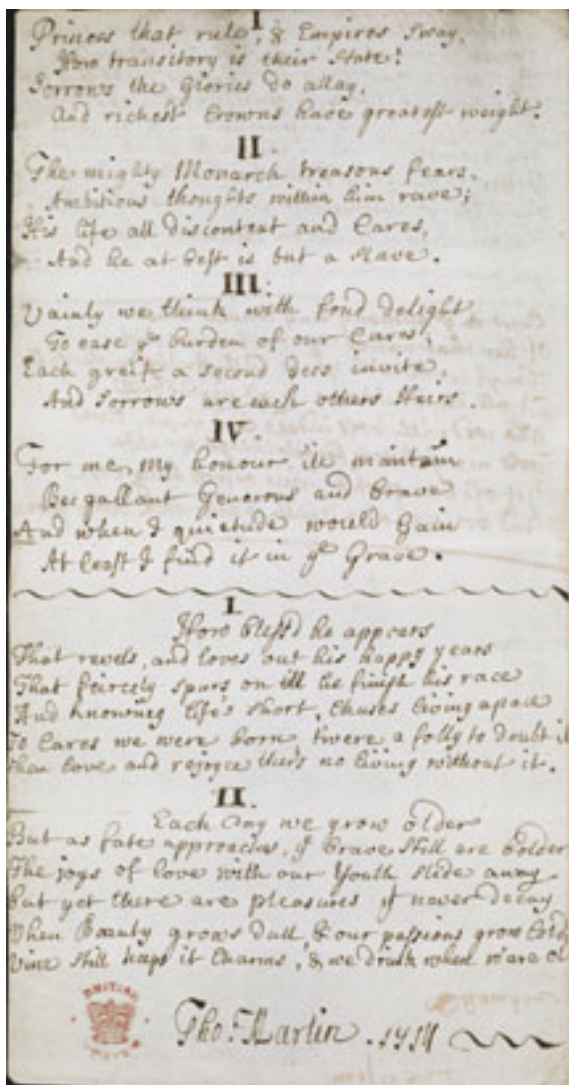 I
Princes that rule, & Empires sway,
How transitory is their State!
Sorrows the Glories do allay,
And richest Crowns have greatest weight.
II.
The mighty Monarch treasons fears,
Ambitious thoughts within him rave;
His life all discontent and Cares,
And he at best is but a slave.
III.
Vainly we think with fond delight
To ease ye burden of our Cares,
Each greif a second does invite,
And sorrows are each others Heirs.
IV.
For me, my honour ile maintain
Bee gallant Generous and brave
And when I quietude would Gain
At least I find it in ye Grave.
I
How bless'd he appears
That revels, and loves out his happy years
That feircely spurs on till he finish his race
And knowing life's short, chuses living apace
To Cares we were born, twere a folly to doubt it
then love and rejoyce thers no living without it.
II.
Each Day we grow older
But as fate approaches, ye brave still are bolder
The joys of love with our Youth slide away
But yet there are pleasures yt never decay
When Beauty grows dull, & our passions grow Cold
Wine still keeps it Charms, & we drink when w'are ol
BRITISH
Tho: Martin. 1714